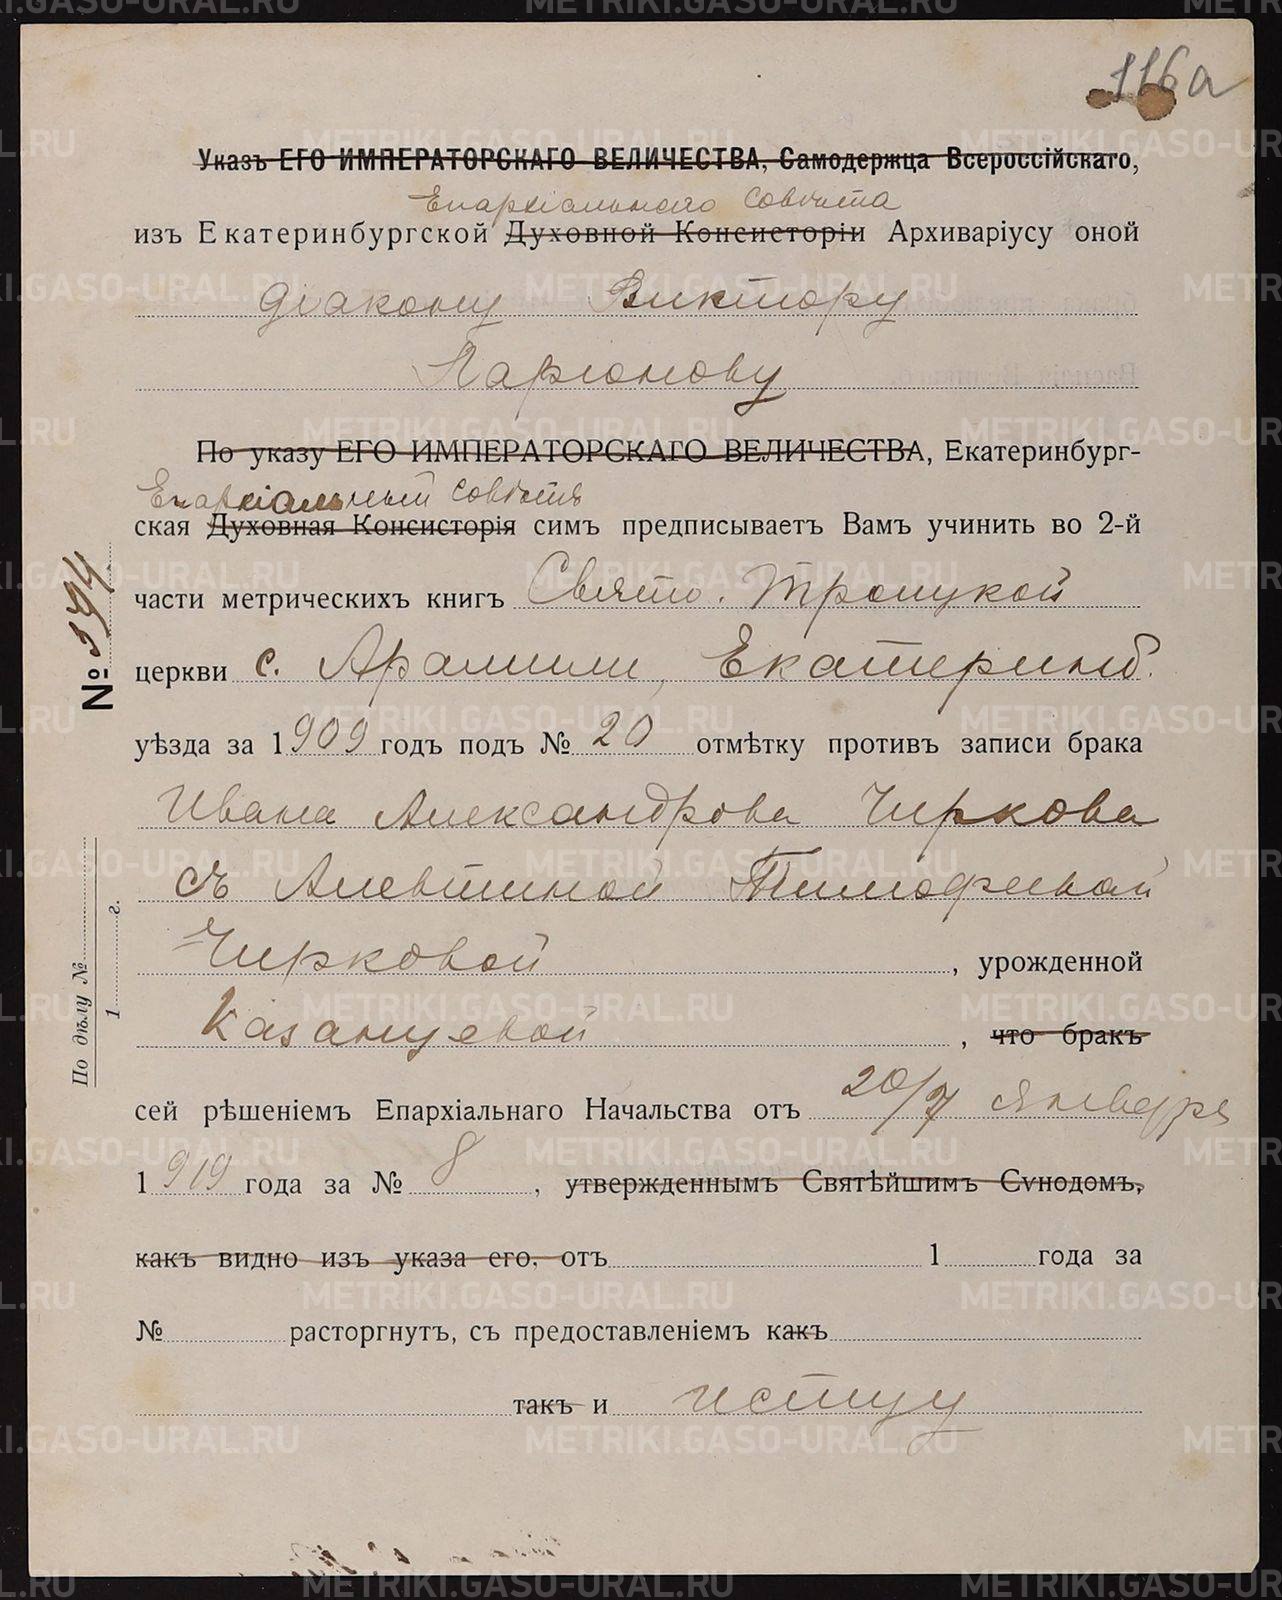 116а
Указъ ЕГО ИМПЕРАТОРСКАГО ВЕЛИЧЕСТВА, Самодержца Всероссійскаго,
Епархіальнаго Совѣта
изъ Екатеринбургской Духовной Консисторіи Архиваріусу оной
діакону Виктору
Ларіонову
По указу ЕГО ИМПЕРАТОРСКАГО ВЕЛИЧЕСТВА, Екатеринбург-
Епархіальный Совѣтъ
ская Духовная Консисторія симъ предписываетъ Вамъ учинить во 2-й
части метрическихъ книгъ Свято-Троицкой
церкви с. Арамили, Екатеринб.
уѣзда за 1909 годъ подъ № 20 отмѣтку противъ записи брака
Ивана Александрова Чиркова
съ Алевтиной Тимофеевой
Чирковой, урожденной
Казанцевой, что бракъ
сей рѣшеніемъ Епархіальнаго Начальства отъ 20/7 Января
1919 года за № 8, утвержденнымъ Святѣйшимъ Сѵнодомъ,
какъ видно изъ указа его, отъ 1 года за
№ расторгнутъ, съ предоставленіемъ какъ
такъ и истцу
№
По дѣлу №
1 г.
METRIKI.GASO-URAL.RU